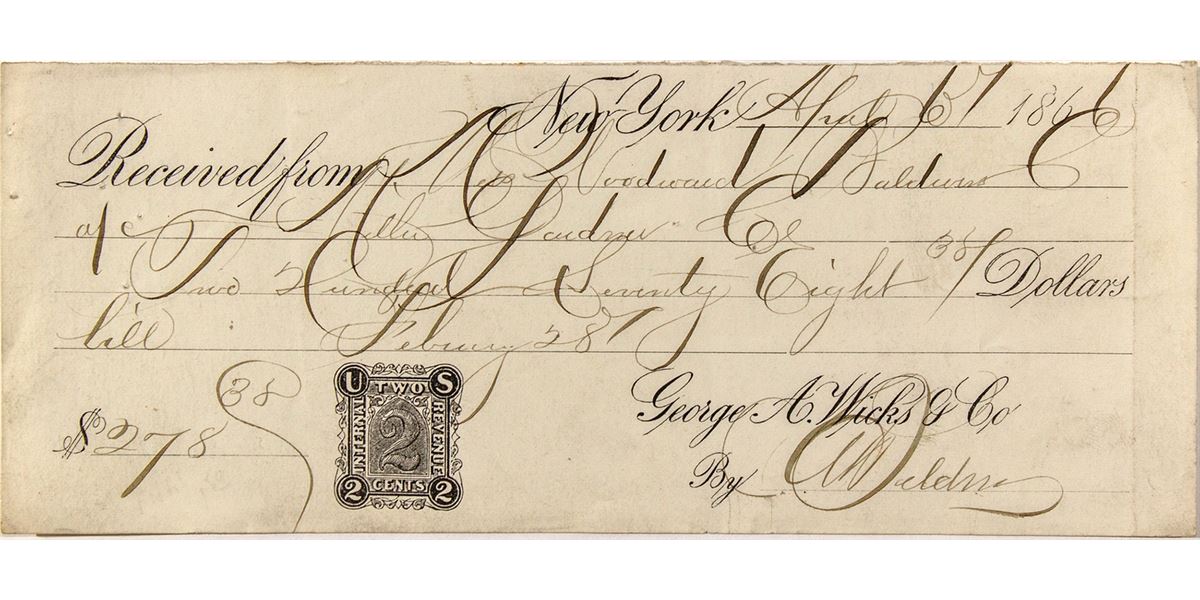 New York April 17 1866
Received from Mess Woodward Baldwin & Co
a/c Gardner & Co
Two Hundred & Seventy Eight 38/ Dollars
bill February 28
$278 38
U S
TWO
INTERNAL REVENUE
2
2 CENTS 2
George A. Wicks & Co
By